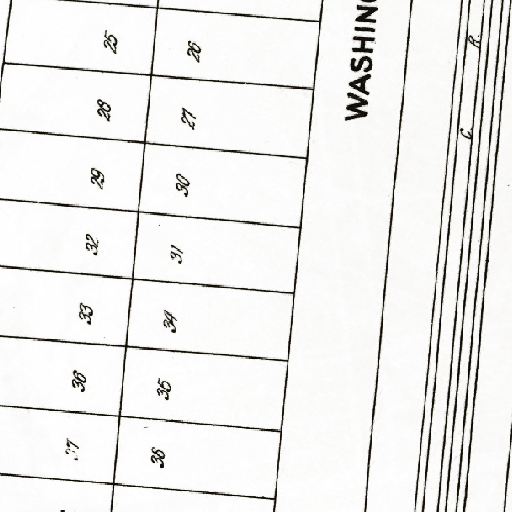 25 26
28 27
29 30
32 31
33 34
36 35
37 38
WASHING
C. R.